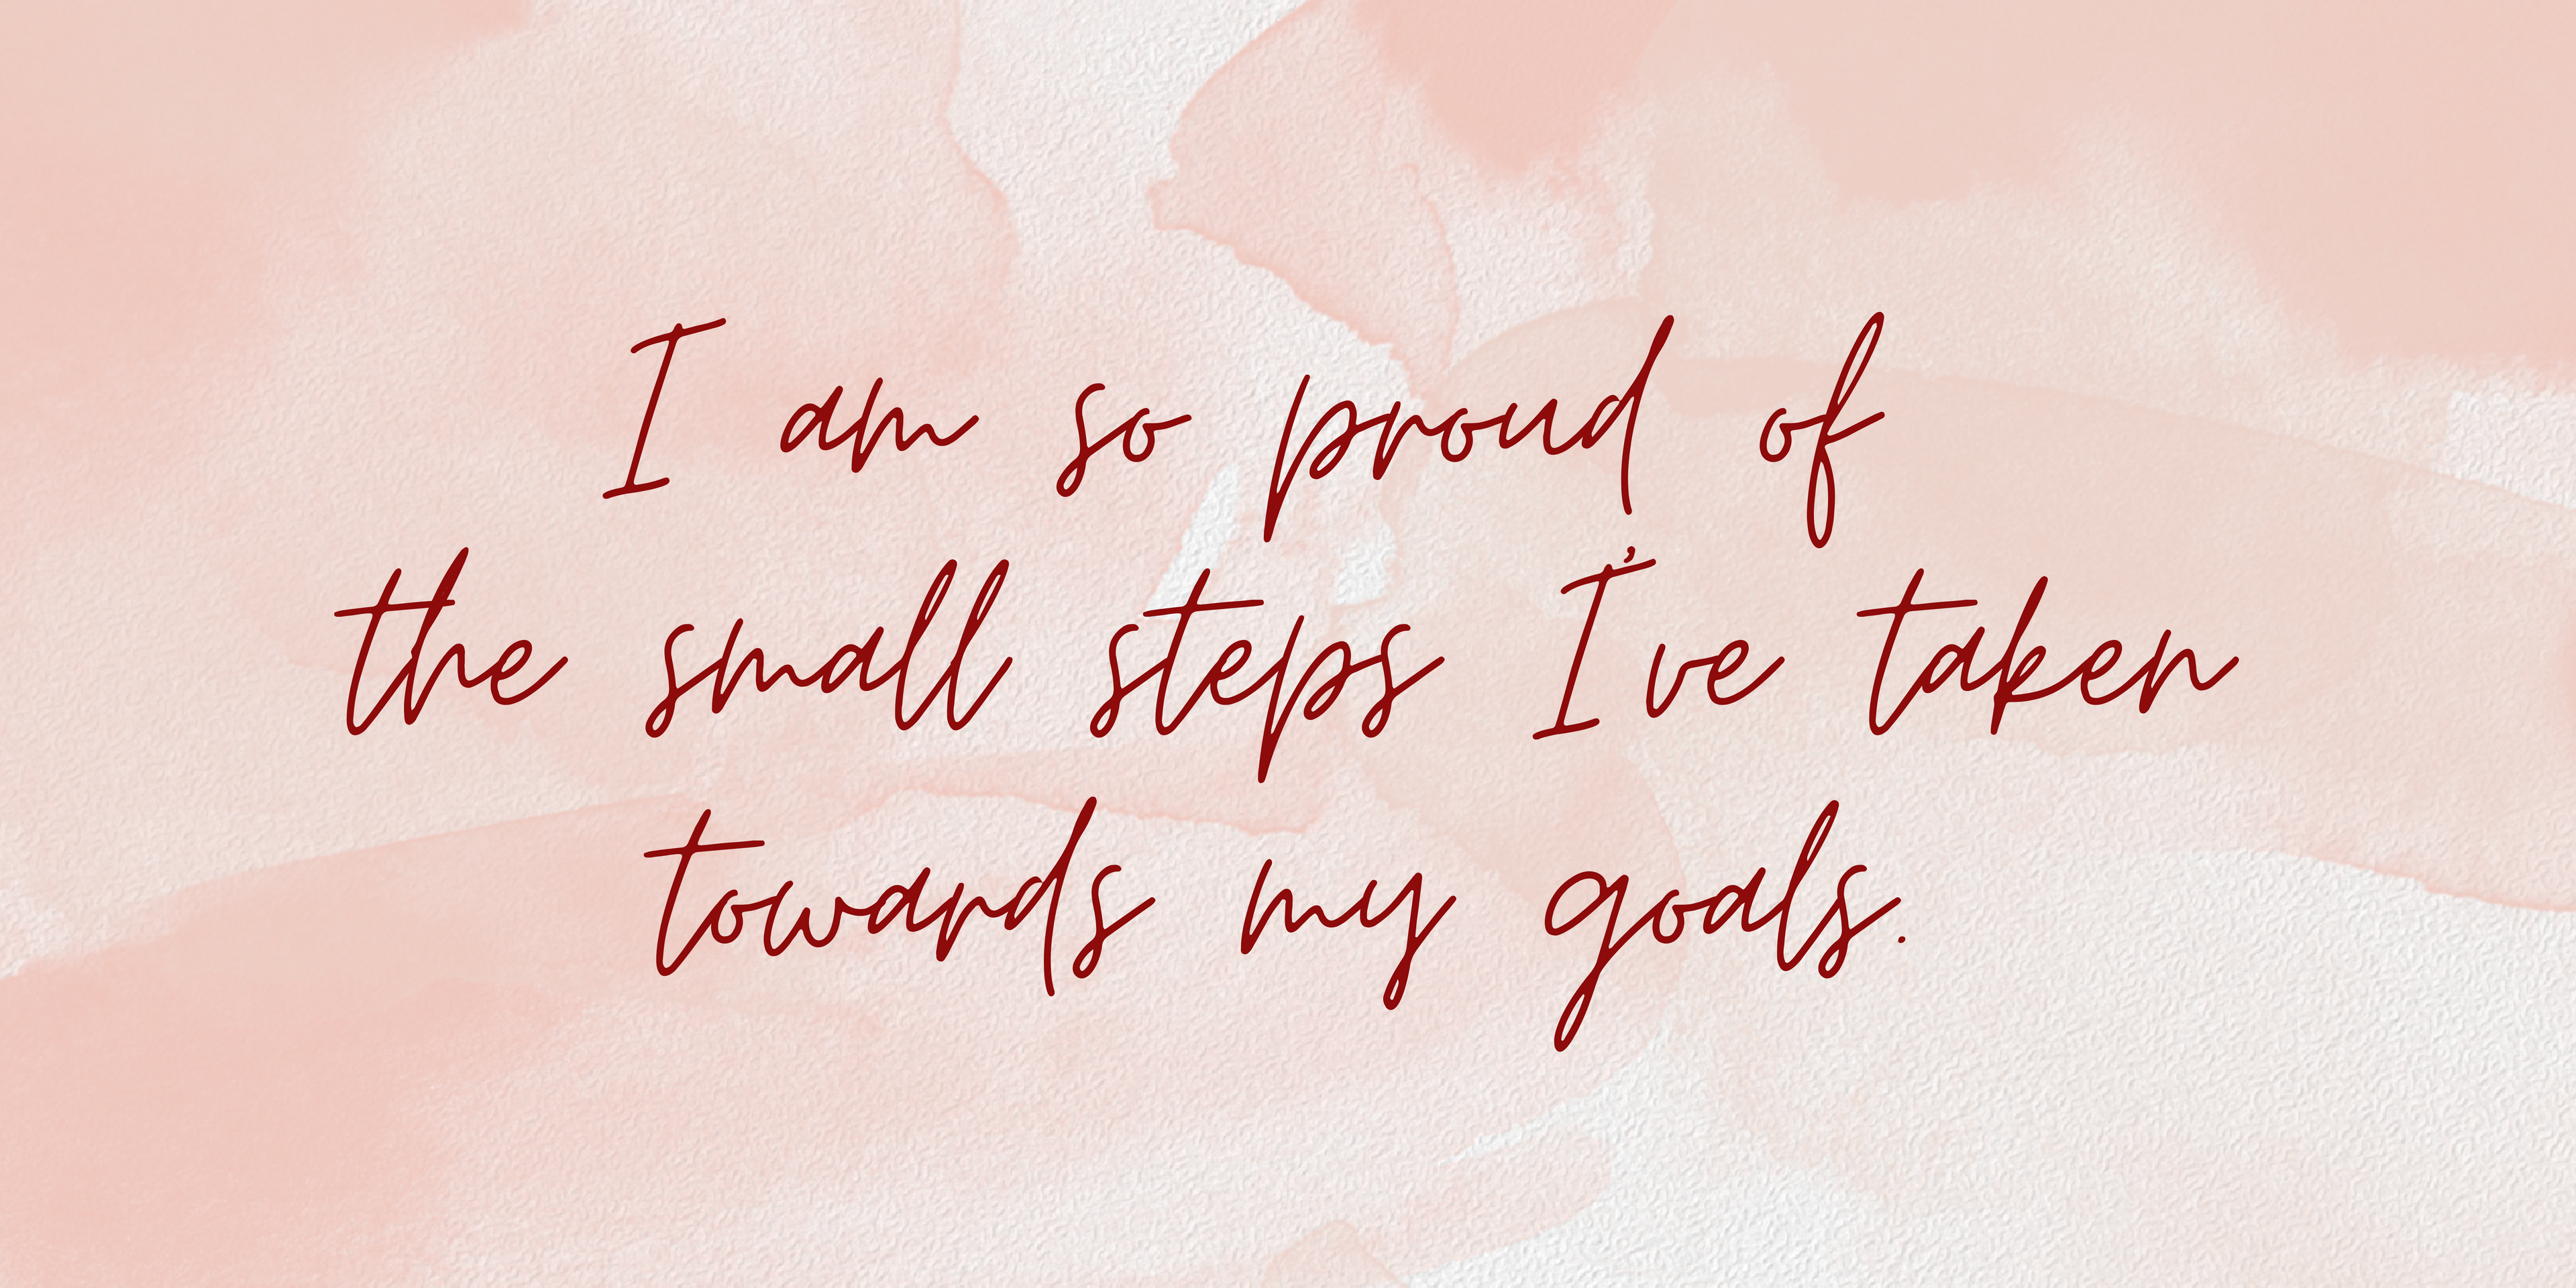 I am so proud of
the small steps I've taken
towards my goals.